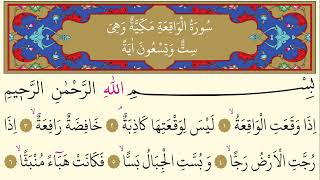 سُورَةُ الْوَاقِعَةِ مَكِّيَّةٌ وَهِيَ
سِتٌّ وَتِسْعُونَ اٰيَةً
بِسْمِ اللهِ الرَّحْمٰنِ الرَّحٖيمِ
اِذَا وَقَعَتِ الْوَاقِعَةُۙ ١ لَيْسَ لِوَقْعَتِهَا كَاذِبَةٌۘ ٢ خَافِضَةٌ رَافِعَةٌۙ ٣ اِذَا
رُجَّتِ الْاَرْضُ رَجًّاۙ ٤ وَبُسَّتِ الْجِبَالُ بَسًّاۙ ٥ فَكَانَتْ هَبَٓاءً مُنْبَثًّاۙ ٦